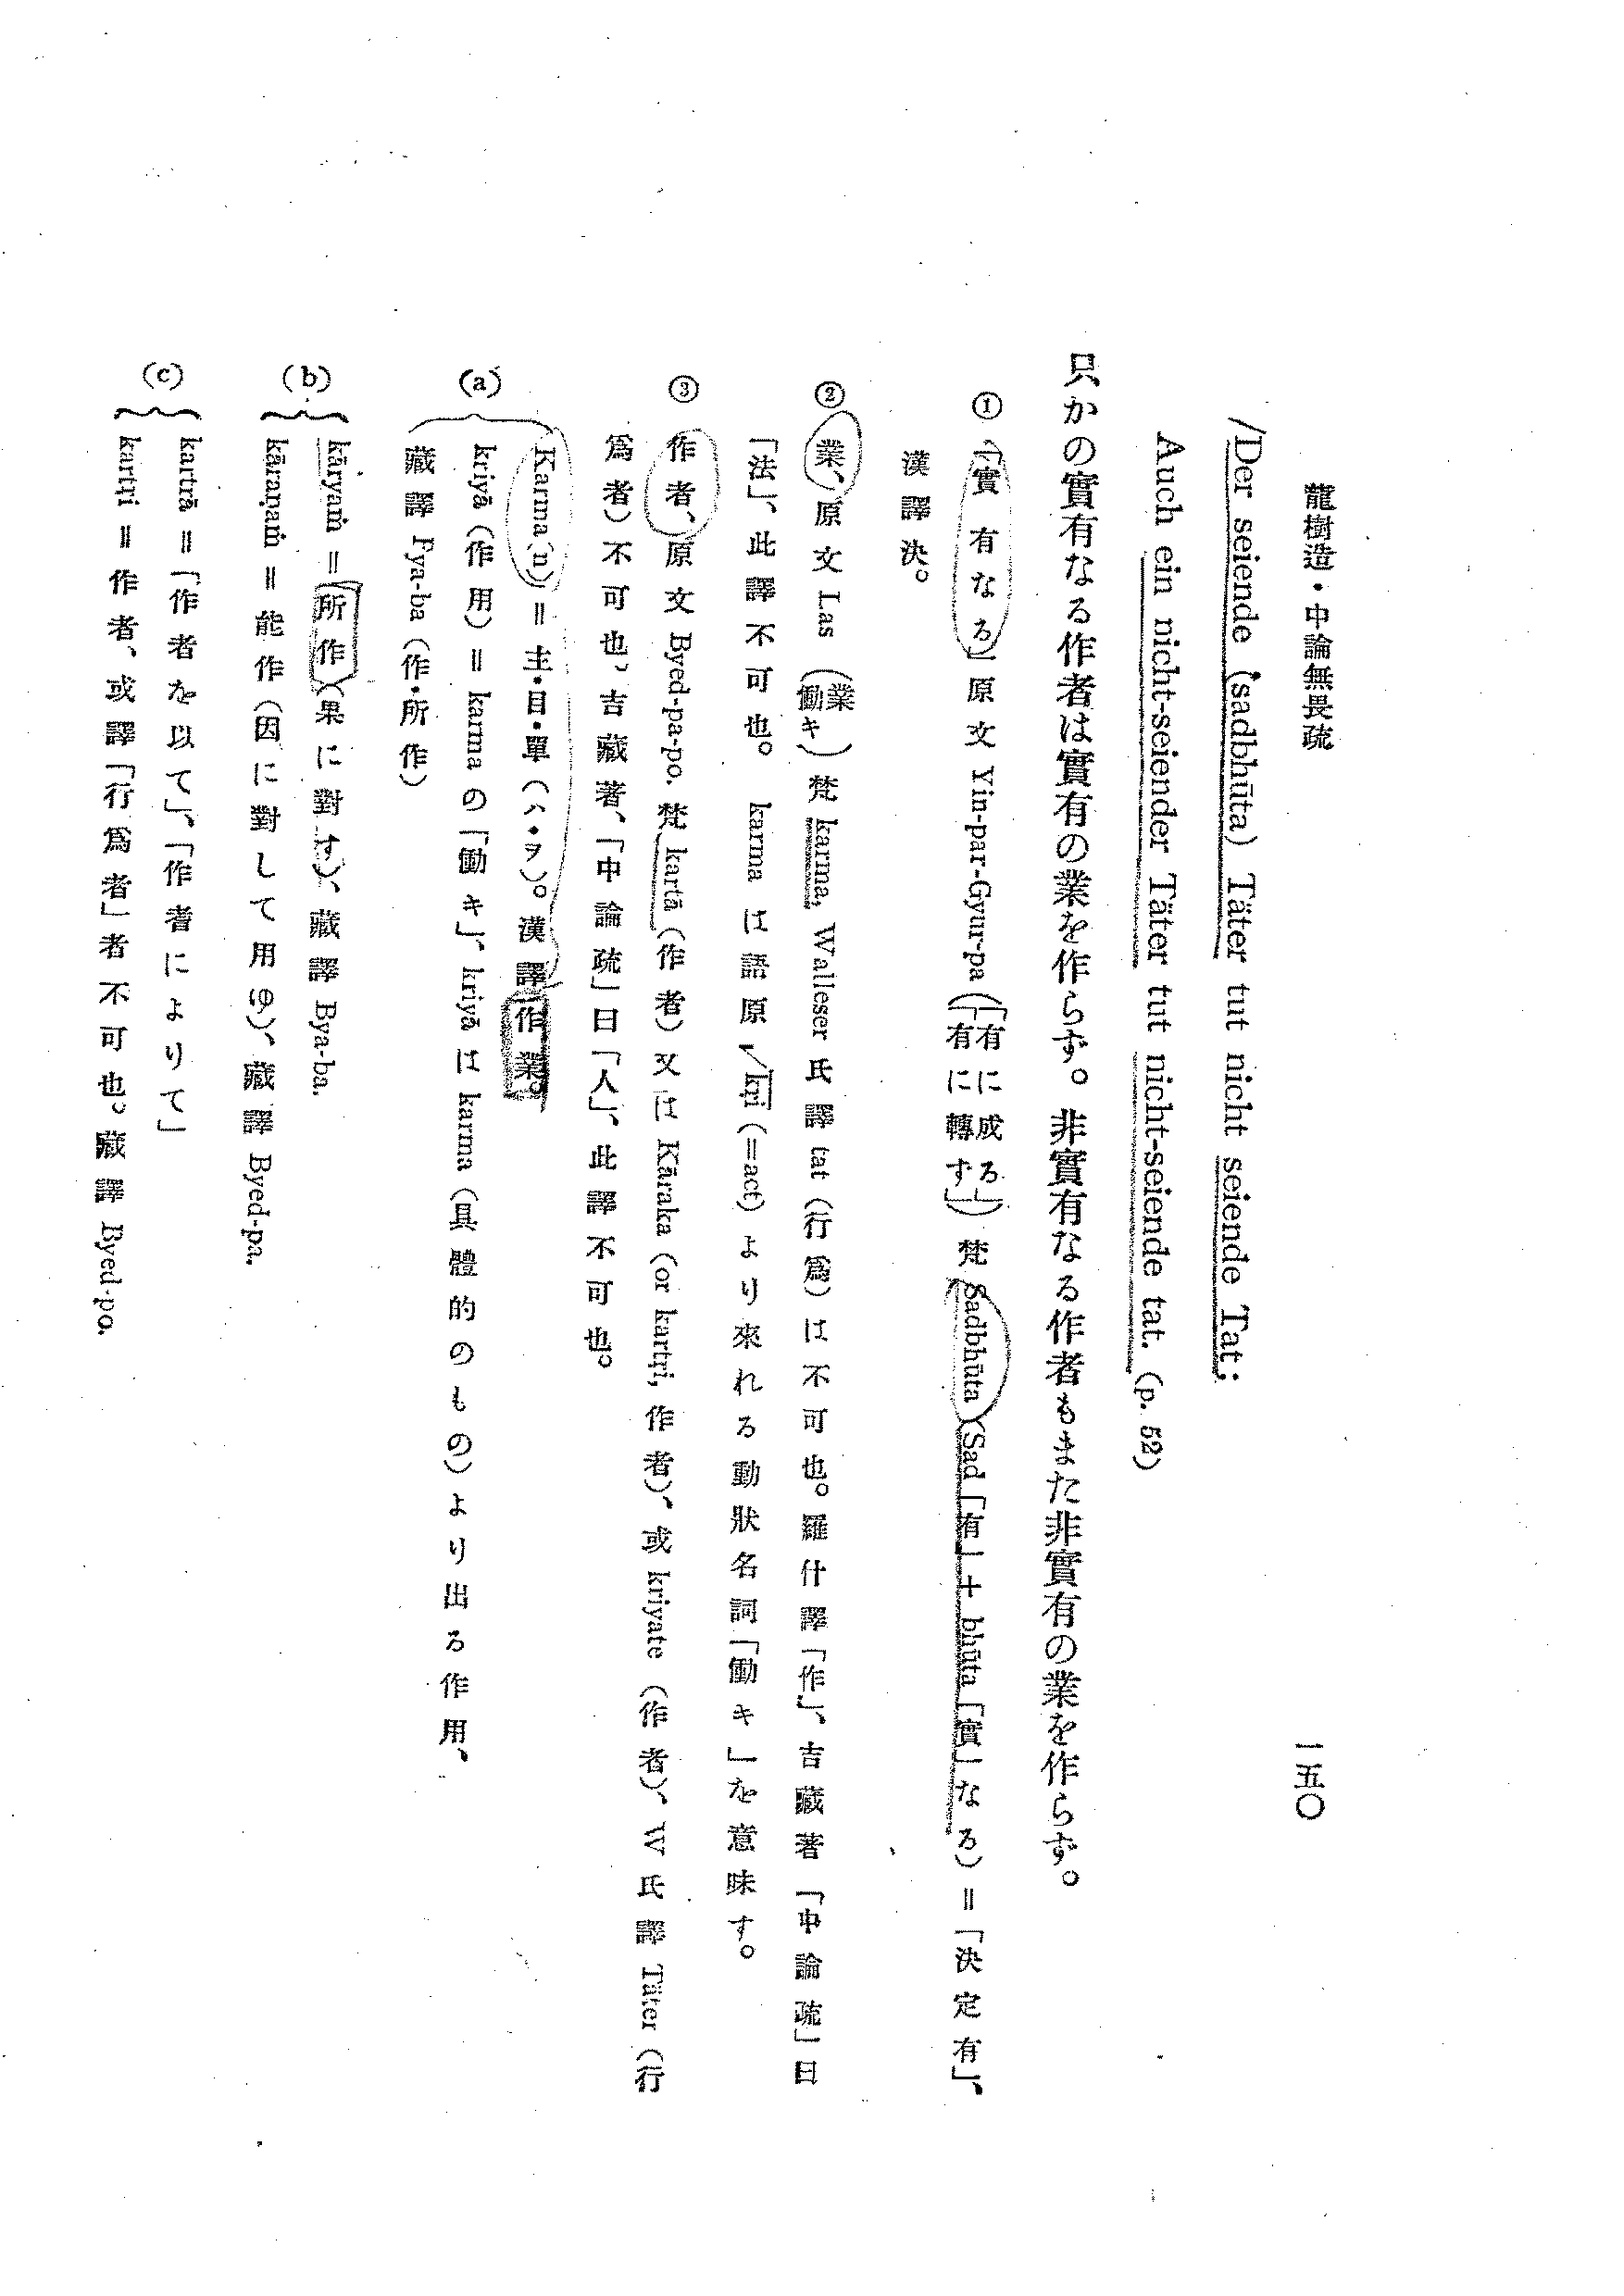 龍樹造・中論無畏疏
一五〇
Der seiende (sadbhūta) Täter tut nicht seiende Tat;
Auch ein nicht-seiender Täter tut nicht-seiende tat. (p. 52)
只かの實有なる作者は實有の業を作らず。非實有なる作者もまた非實有の業を作らず。
① 「實有なる」原文 Yin-par-Gyur-pa (「有に成る」「有に轉す」) 梵 Sadbhūta (Sad「有」+ bhūta「實」なる) =「決定有」、
漢譯決。
② 業、原文 Las (業 働キ) 梵 karma, Walleser 氏譯 tat (行爲) は不可也。羅什譯「作」、吉藏著「中論疏」曰
「法」、此譯不可也。 karma は語原 √kṛi (=act) より來れる動狀名詞「働キ」を意味す。
③ 作者、原文 Byed-pa-po. 梵 kartā (作者) 又は Kāraka (or kartṛi, 作者)、或 kriyate (作者)、W 氏譯 Täter (行
爲者) 不可也、吉藏著、「中論疏」曰「人」、此譯不可也。
(a) Karma(n) = 主・目・單 (ハ・ヲ)。漢譯作業。
kriyā (作用) = karma の「働キ」、kriyā は karma (具體的のもの) より出る作用、
藏譯 Bya-ba (作・所作)
(b) kāryaṁ = 所作 (果に對す)、藏譯 Bya-ba.
kāraṇaṁ = 能作 (因に對して用ゆ)、藏譯 Byed-pa.
(c) kartrā =「作者を以て」、「作者によりて」
kartṛi = 作者、或譯「行爲者」者不可也。藏譯 Byed-po.